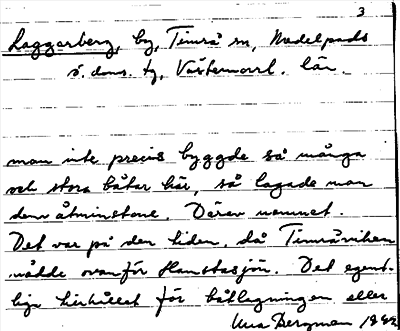 3
Laggarberg, by, Timrå sn, Medelpads
s. doms. tg, Västernorrl. län.
man inte precis byggde så många
och stora båtar här, så lagade man
dem åtminstone. Därav namnet.
Det var på den tiden, då Timråviken
nådde ovanför Hamstasjön. Det egent-
liga tillhållet för båtlagningen eller
Una Bergman 1942